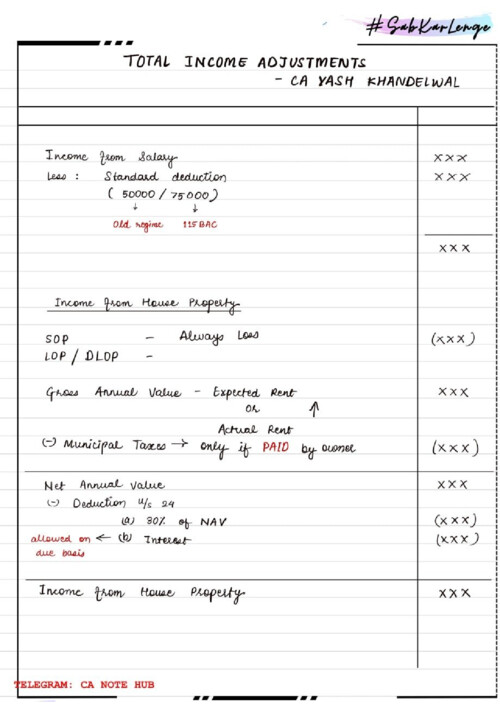 #SabKarLenge
TOTAL INCOME ADJUSTMENTS
- CA YASH KHANDELWAL
Income from Salary XXX
Less : Standard deduction XXX
( 50000 / 75000 )
↓ ↓
Old regime 115 BAC
XXX
Income from House Property
SOP - Always Loss (XXX)
LOP / DLOP -
Gross Annual Value - Expected Rent XXX
OR ↑
Actual Rent
(-) Municipal Taxes → only if PAID by owner (XXX)
Net Annual Value XXX
(-) Deduction u/s 24
(a) 30% of NAV (XXX)
allowed on ← (b) Interest (XXX)
due basis
Income from House Property XXX
TELEGRAM: CA NOTE HUB